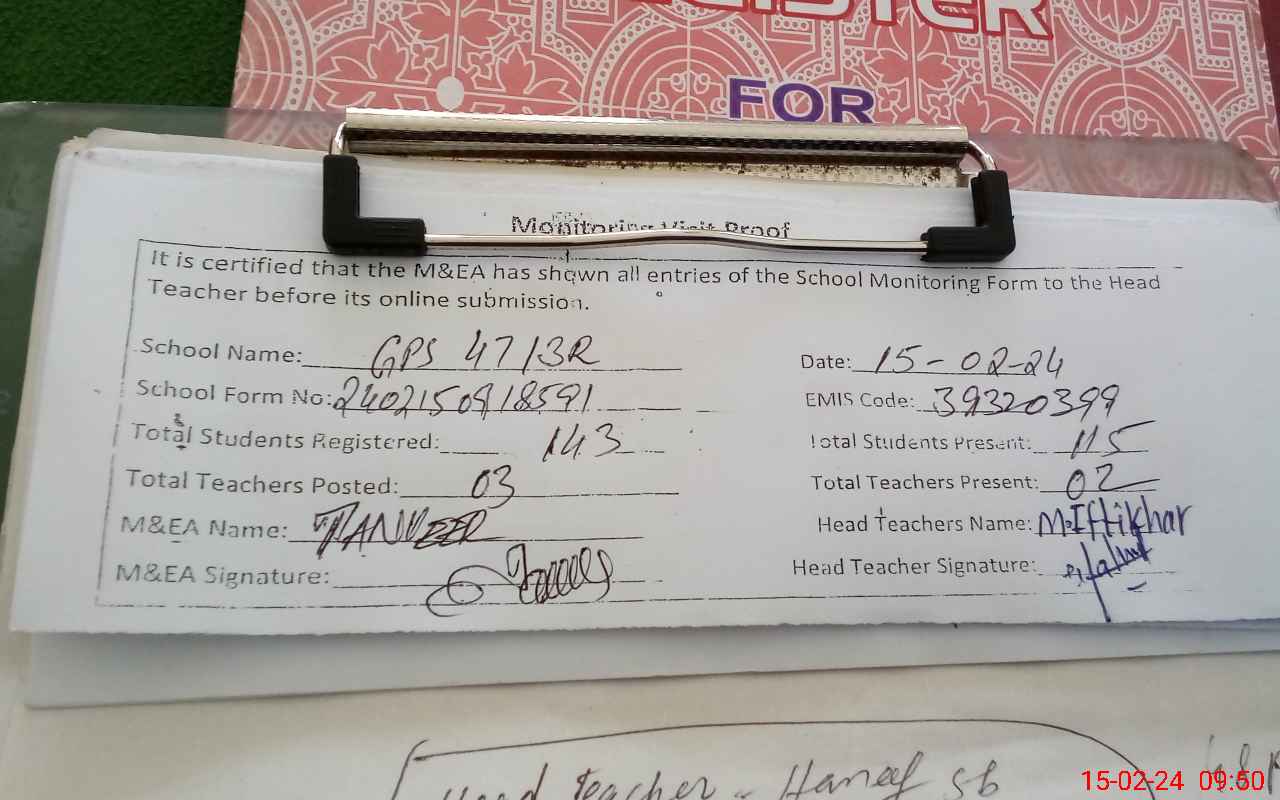 FOR
Monitoring Visit Proof
It is certified that the M&EA has shown all entries of the School Monitoring Form to the Head
Teacher before its online submission.
School Name: GPS 47/3R Date: 15-02-24
School Form No: 2402150918591 EMIS Code: 39320399
Total Students Registered: 143 Total Students Present: 115
Total Teachers Posted: 03 Total Teachers Present: 02
M&EA Name: TANVEER Head Teachers Name: M.Iftikhar
M&EA Signature: Head Teacher Signature:
Head Teacher - Haneef sb
15-02-24 09:50